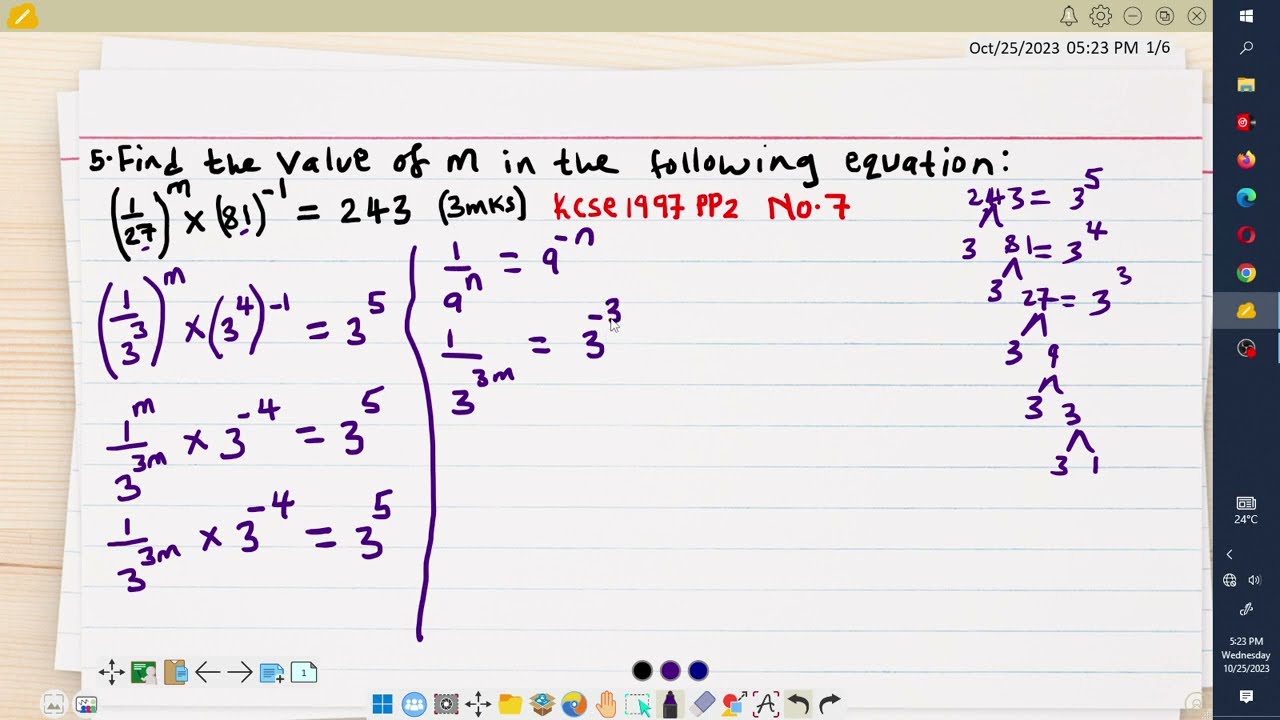 Oct/25/2023 05:23 PM 1/6
5. Find the value of m in the following equation:
(1/27)^m × (81)^-1 = 243 (3mks) KCSE 1997 PP2 No. 7
(1/3^3)^m × (3^4)^-1 = 3^5
1^m/3^3m × 3^-4 = 3^5
1/3^3m × 3^-4 = 3^5
1/9^n = 9^-n
1/3^3m = 3^-3
243 = 3^5
3 81 = 3^4
3 27 = 3^3
3 9
3 3
3 1
1
24°C
5:23 PM
Wednesday
10/25/2023